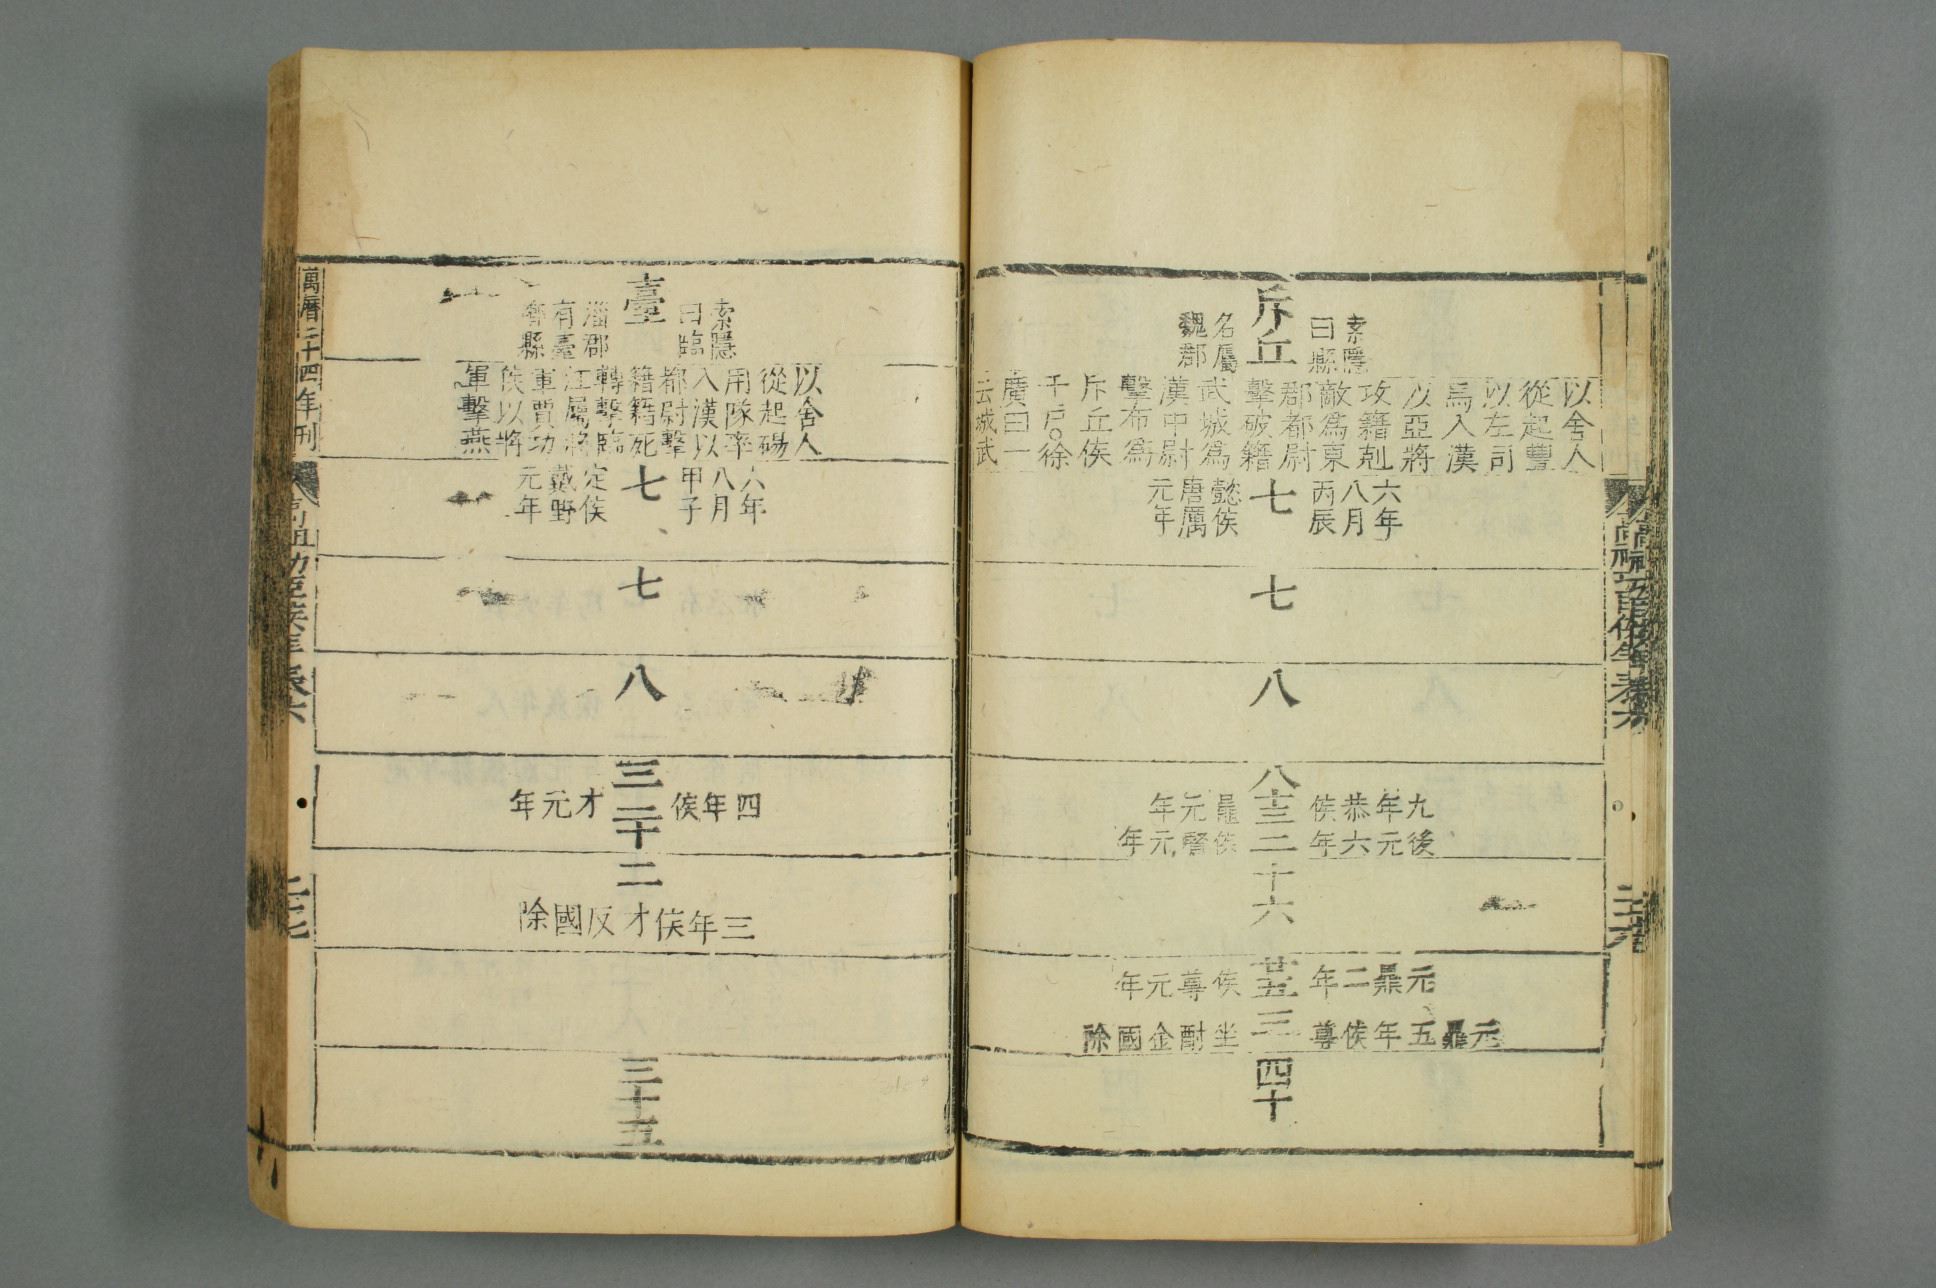 斥丘
索隱
曰縣
名屬
魏郡
以舍人
從起豐
以左司
馬入漢
以亞將
攻籍剋
敵爲東
郡都尉
擊破籍
武城爲
漢中尉
擊布爲
斥丘侯
千戶○徐
廣曰一
云城武
七
六年
八月
丙辰
懿侯
唐厲
元年
七
八
八
九年恭侯
元年
十三
後元六年
侯鼂
元年
二
侯賢元年
十六
廿五
元鼎二年
侯尊元年
三
元鼎五年侯尊
坐酎金國除
四十
高祖功臣侯年表六
二十六
臺
索隱
曰臨
淄郡
有臺
鄉縣
以舍人
從起碭
用隊率
入漢以
都尉擊
籍籍死
轉擊臨
江屬將
軍賈功
侯以將
軍擊燕
七
六年
八月
甲子
定侯
戴野
元年
七
八
三
四年侯
才元年
二十
二
三年侯才反國除
三十五
萬曆二十四年刊
高祖功臣侯年表六
二十七